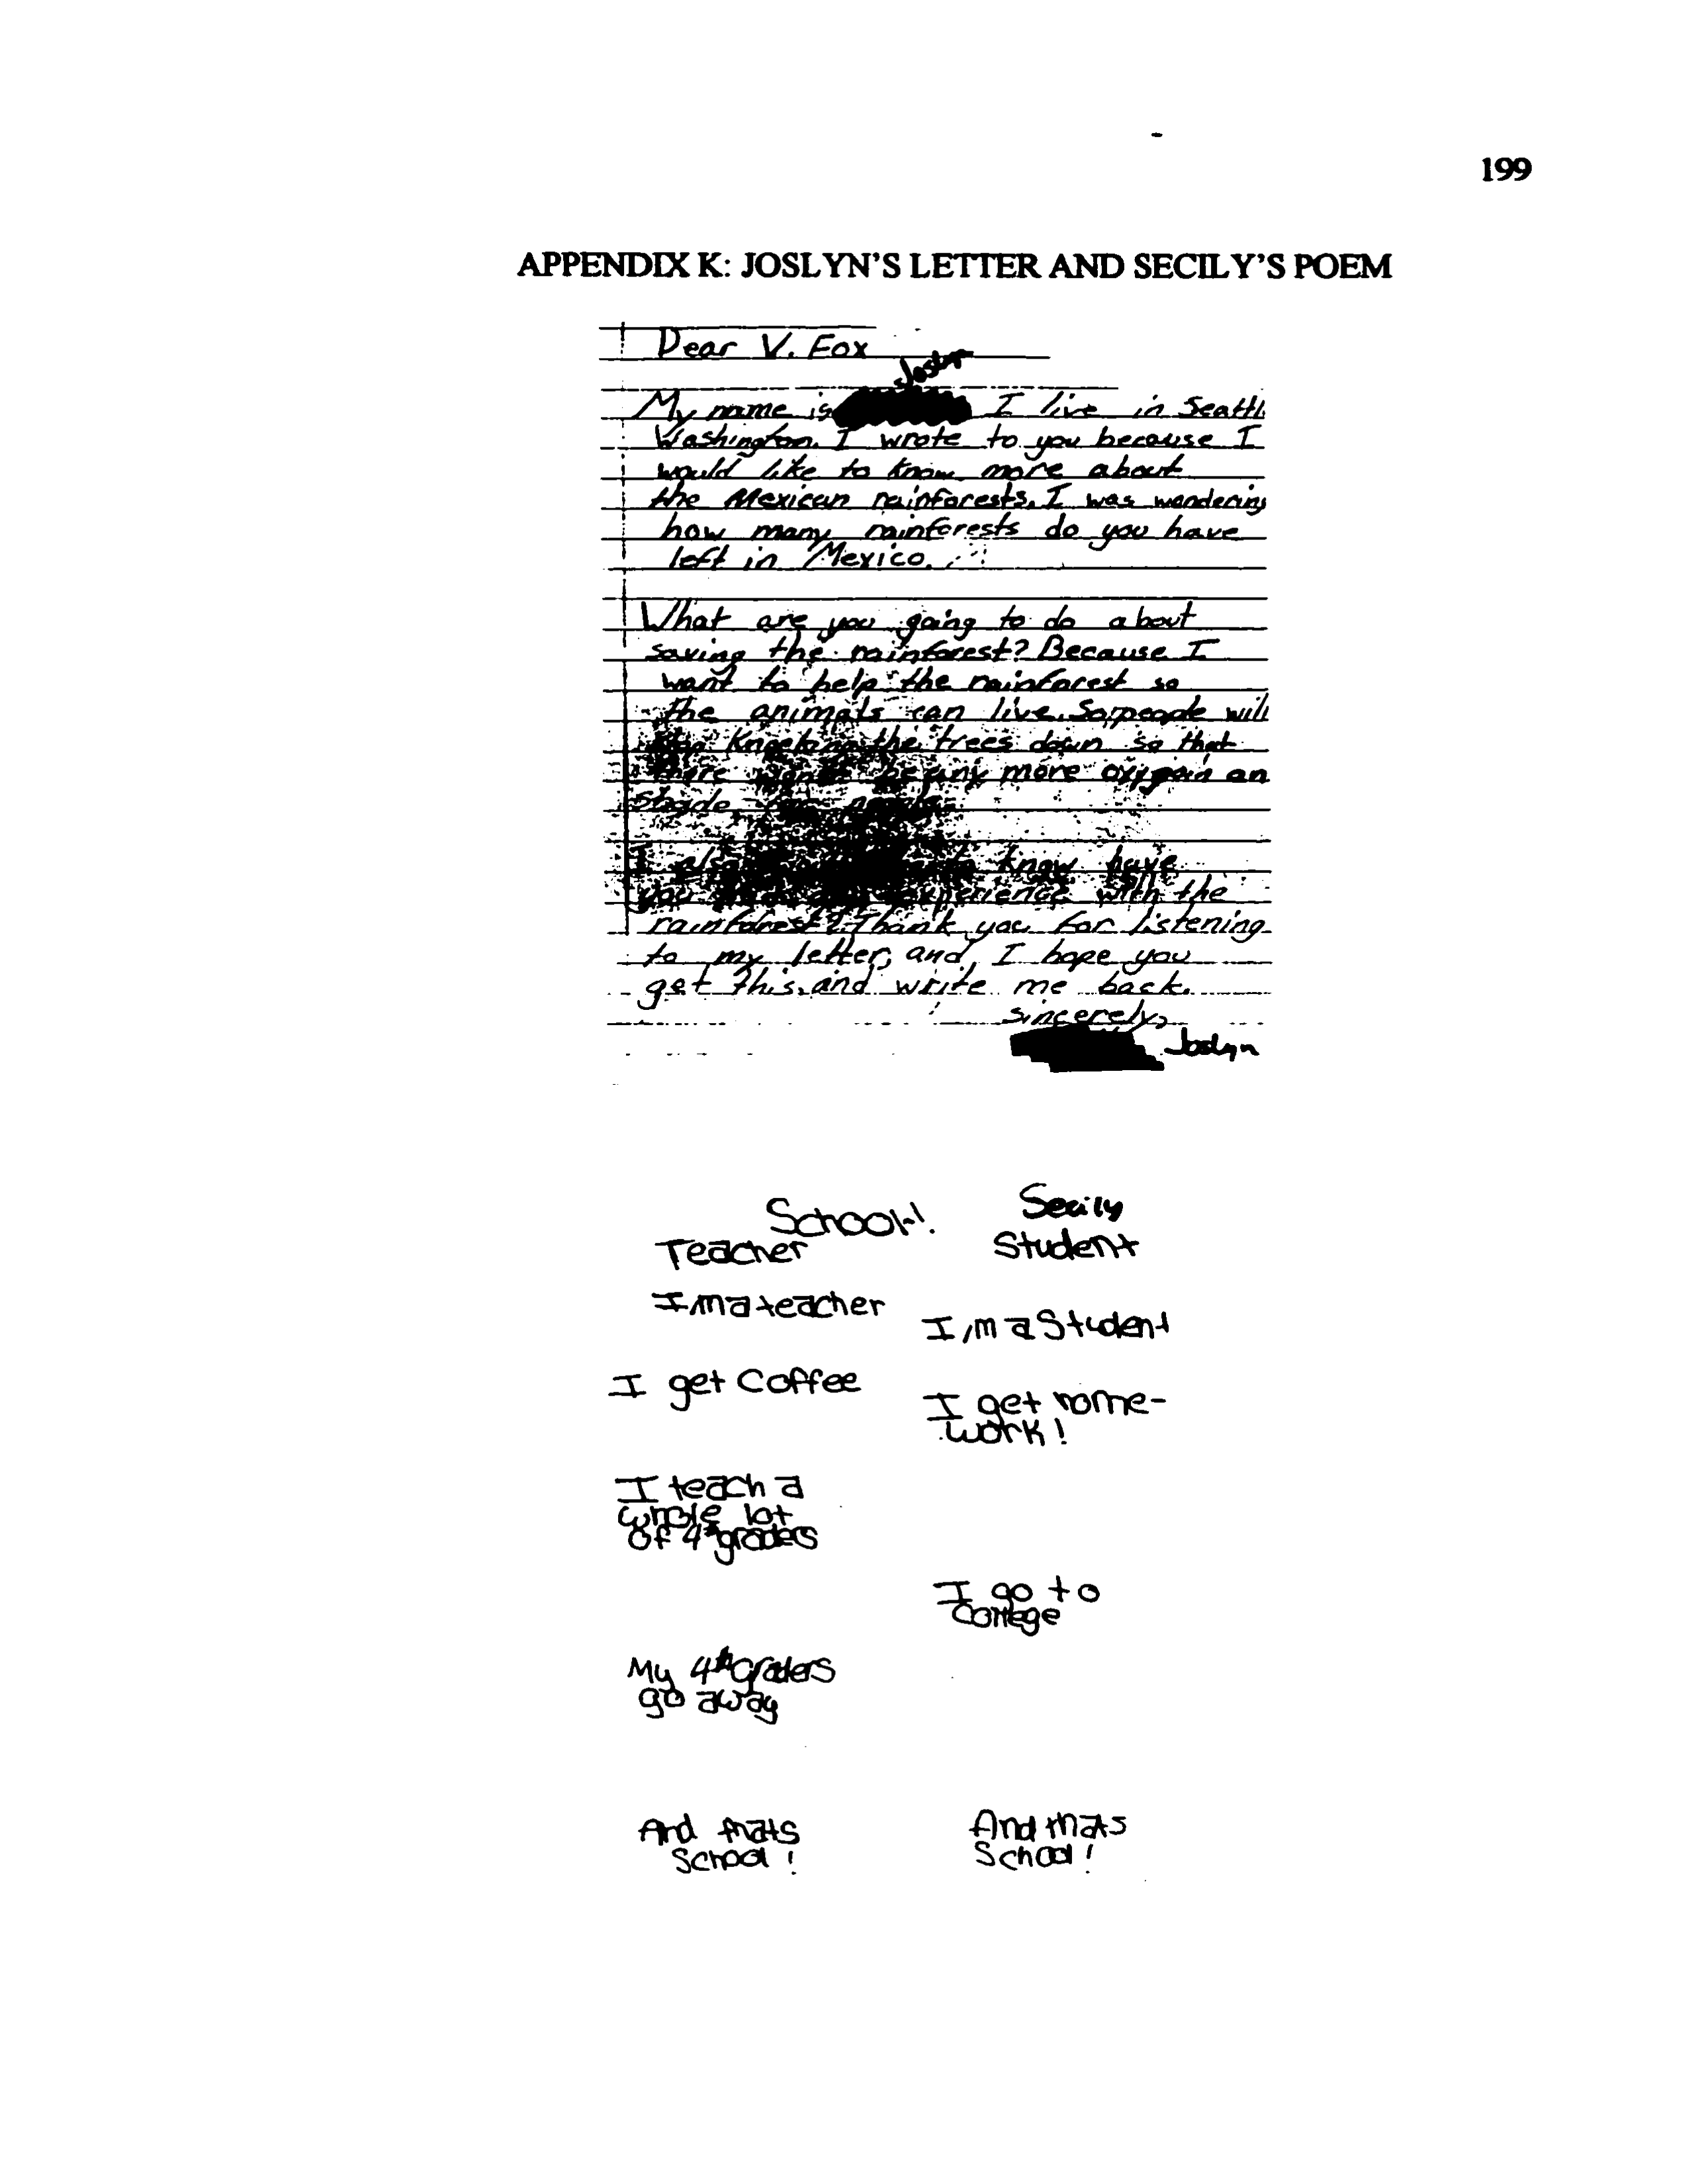 199
APPENDIX K: JOSLYN'S LETTER AND SECILY'S POEM
Dear V. Fox
Joslyn
My name is I live in Seattl
Washington. I wrote to you because I
would like to know more about
the Mexican rainforests. I was wondering
how many rainforests do you have
left in Mexico.
What are you going to do about
saving the rainforest? Because I
want to help the rainforest so
the animals can live. So people will
the trees down so that
there be any more oxygain an
Shade for people
I also know have
you experience with the
rainforest? Thank you for listening
to my letter, and I hope you
get this, and write me back.
sincerely,
Joslyn
School! Secily
Teacher Student
I'm a teacher
I'm a Student
I get Coffee
I get home-
work!
I teach a
whole lot
of 4th graders
I go to
College
My 4th Graders
go away
And thats And thats
School! School!